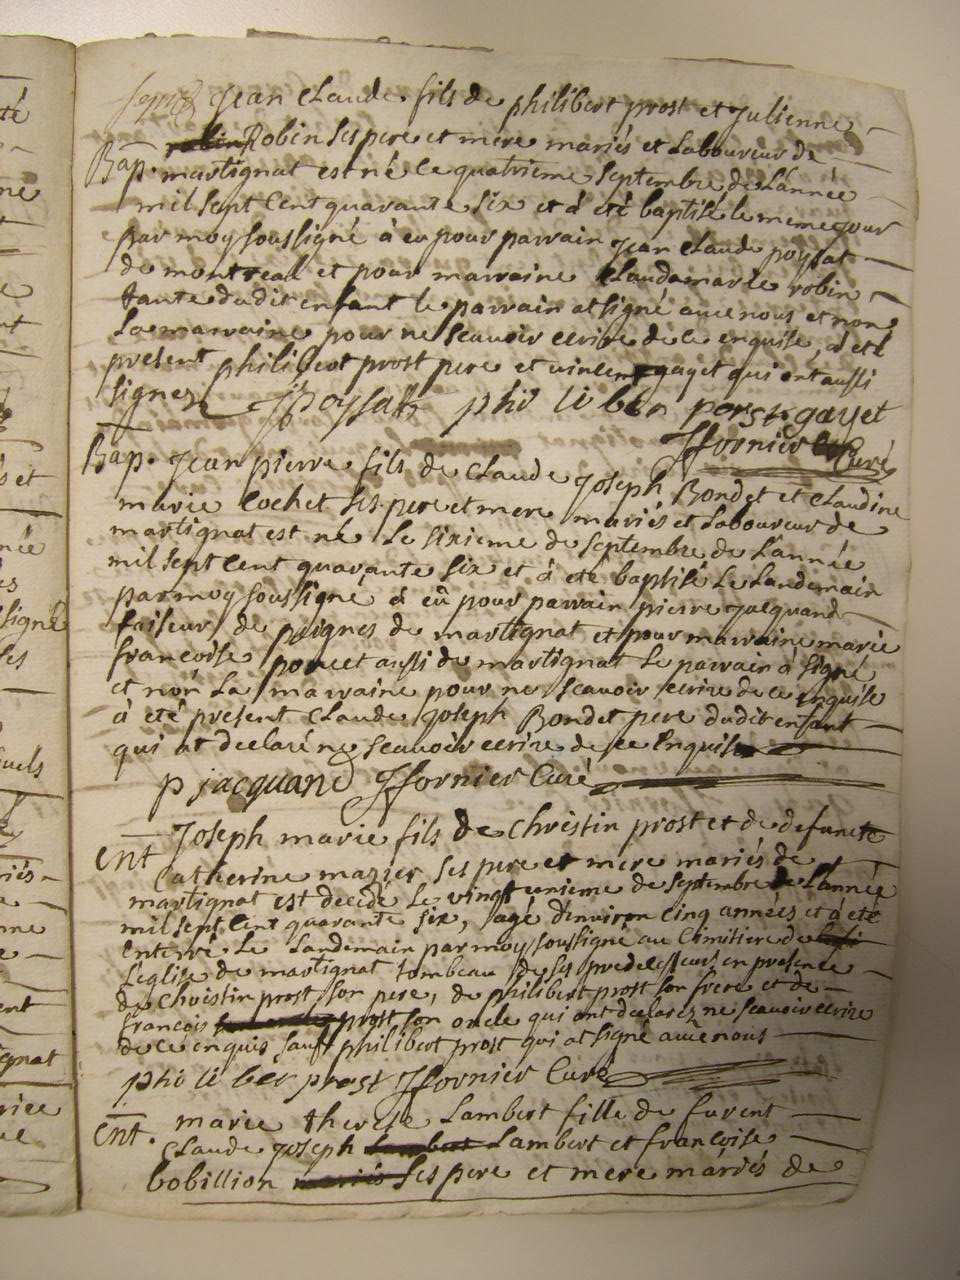 Jean Claude fils de philibert prost et Julienne
Bap. Robin ses pere et mere mariés et Laboureur de
martignat est né le quatrieme septembre de L'année
mil sept cent quarante six et à eté baptisé le meme jour
par moy soussigné à eu pour parrain Jean Claude poysat
de montreal et pour marraine Claudamarie robin
tante dudit enfant le parrain at signé avec nous et non
La marraine pour ne scavoir ecrire de ce enquise, à eté
present philibert prost pere et vincent gayet qui ont aussi
signez JJpoysat phi li ber porst gayet
JfForNier Curé
Bap. Jean pierre fils de Claude Joseph Bondet et Claudine
marie Cochet ses pere et mere mariés et Laboureur de
martignat est né Le sixieme de septembre de L'année
mil sept cent quarante six et à eté baptisé Le Landemain
par moy soussigné à eû pour parrain pierre Jacquand
faiseur de peignes de martignat et pour marraine marie
francoise poncet aussi de martignat Le parrain à signé
et non La marraine pour ne scavoir ecrire de ce enquise
à eté present Claude Joseph Bondet pere dudit enfant
qui at declaré ne scavoir ecrire de ce Enquis
p jacquand JfForNier Curé
Joseph marie fils de Christin prost et de defuncte
Ent Catherine mazier ses pere et mere mariés de
martignat est decidé Le vingt unieme de septembre de L'année
mil sept cent quarante six, agé d'environ cinq années et à eté
Enterré Le Landemain par moy soussigné au Cimitiere de
L'eglise de martignat tombeau de ses predecesseurs en presence
de Christin prost son pere, de philibert prost son frere et de
francois prost son oncle qui ont declarez ne scavoir ecrire
de ce enquis sauft philibert prost qui at signé avec nous
phi li ber prost JfForNier Curé
Ent. marie therese Lambert fille de furent
Claude Joseph Lambert et francoise
bobillion ses pere et mere mariés de